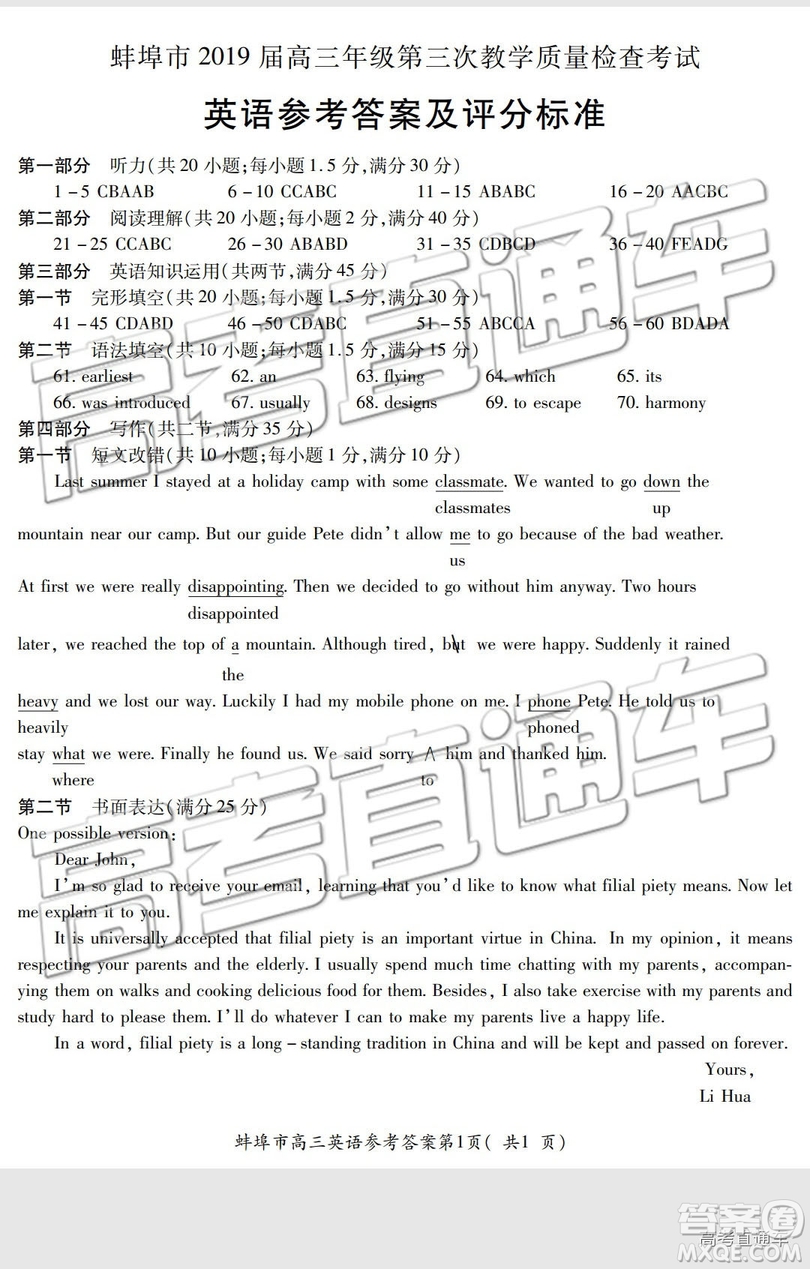 蚌埠市 2019 届高三年级第三次教学质量检查考试
英语参考答案及评分标准
第一部分 听力(共 20 小题;每小题 1.5 分,满分 30 分)
1-5 CBAAB 6-10 CCABC 11-15 ABABC 16-20 AACBC
第二部分 阅读理解(共 20 小题;每小题 2 分,满分 40 分)
21-25 CCABC 26-30 ABABD 31-35 CDBCD 36-40 FEADG
第三部分 英语知识运用(共两节,满分 45 分)
第一节 完形填空(共 20 小题;每小题 1.5 分,满分 30 分)
41-45 CDABD 46-50 CDABC 51-55 ABCCA 56-60 BDADA
第二节 语法填空(共 10 小题;每小题 1.5 分,满分 15 分)
61. earliest 62. an 63. flying 64. which 65. its
66. was introduced 67. usually 68. designs 69. to escape 70. harmony
第四部分 写作(共二节,满分 35 分)
第一节 短文改错(共 10 小题;每小题 1 分,满分 10 分)
Last summer I stayed at a holiday camp with some classmate. We wanted to go down the
classmates up
mountain near our camp. But our guide Pete didn't allow me to go because of the bad weather.
us
At first we were really disappointing. Then we decided to go without him anyway. Two hours
disappointed
later, we reached the top of a mountain. Although tired, but we were happy. Suddenly it rained
the
heavy and we lost our way. Luckily I had my mobile phone on me. I phone Pete. He told us to
heavily phoned
stay what we were. Finally he found us. We said sorry ∧ him and thanked him.
where to
第二节 书面表达(满分 25 分)
One possible version:
Dear John,
I'm so glad to receive your email, learning that you'd like to know what filial piety means. Now let
me explain it to you.
It is universally accepted that filial piety is an important virtue in China. In my opinion, it means
respecting your parents and the elderly. I usually spend much time chatting with my parents, accompan-
ying them on walks and cooking delicious food for them. Besides, I also take exercise with my parents and
study hard to please them. I'll do whatever I can to make my parents live a happy life.
In a word, filial piety is a long-standing tradition in China and will be kept and passed on forever.
Yours,
Li Hua
蚌埠市高三英语参考答案第1页( 共1 页)
高考直通车
高考直通车
答案圈
高考直通车
MXQE.COM